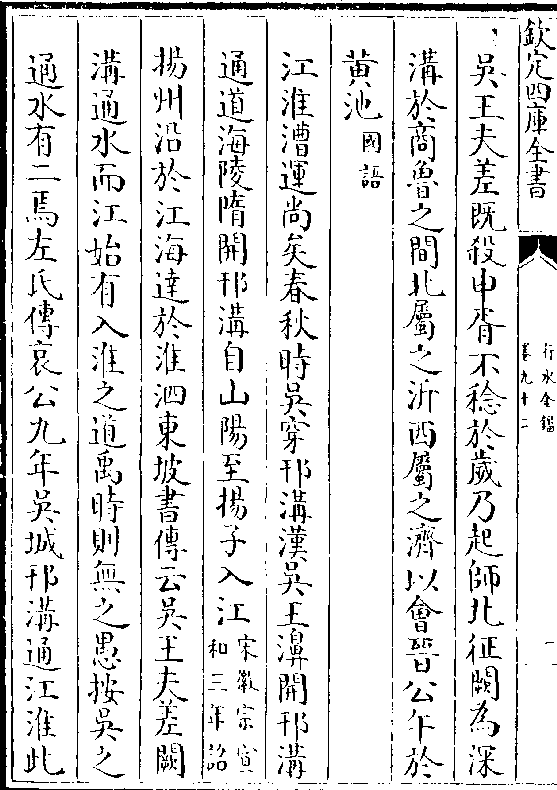 欽定四庫全書
行水金鑑
卷九十二
吳王夫差既殺申胥不稔於歲乃起師北征闕為深
溝於商魯之間北屬之沂西屬之濟以會晉公午於
黃池國語
江淮漕運尚矣春秋時吳穿邗溝漢吳王濞開邗溝
通道海陵隋開邗溝自山陽至揚子入江宋徽宗宣和三年詔
揚州沿於江海達於淮泗東坡書傳云吳王夫差闕
溝通水而江始有入淮之道禹時則無之愚按吳之
通水有二焉左氏傳哀公九年吳城邗溝通江淮此